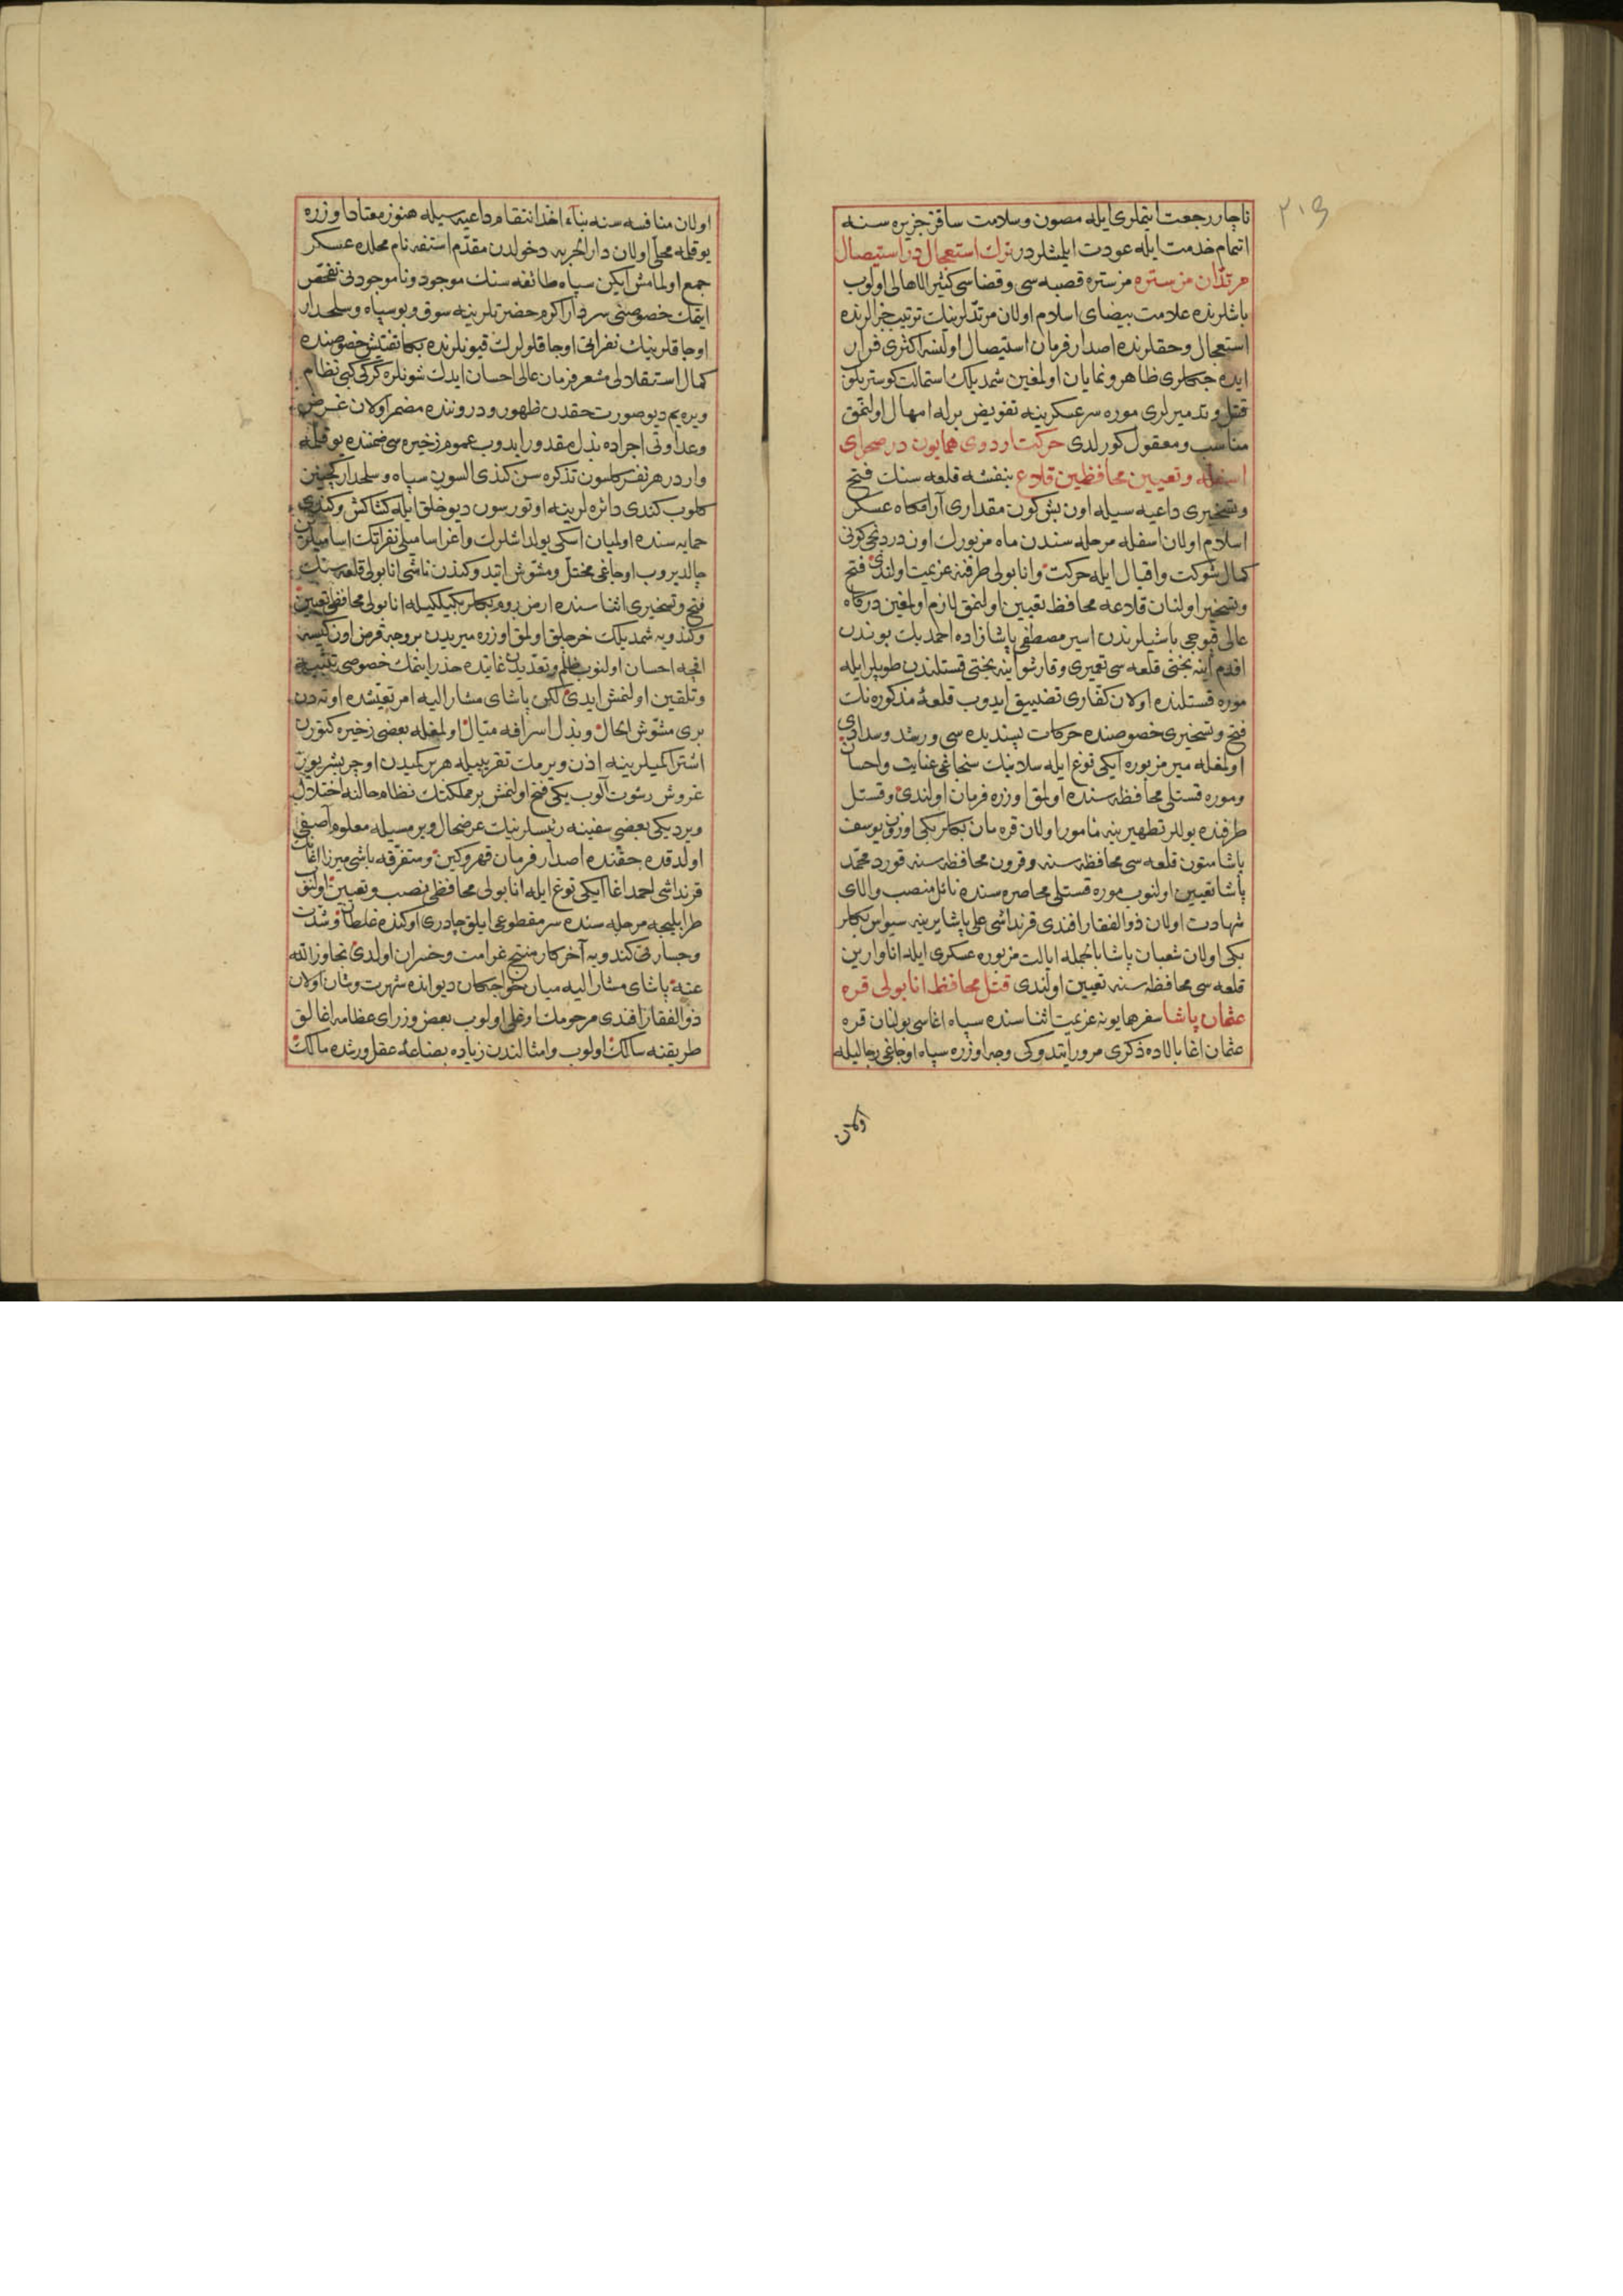 ٢٠٤
ناچار رجعت ایتملری ایله مصون وسلامت ساقز جزیره سنه
اتمام خدمت ایله عودت ایلمشلردر ترك استعجال در استیصال
مرتدان مزستره مزستره قصبه سی وقضاسی کثیر الاهالی اولوب
باشلرنده علامت بیضای اسلام اولان مرتدلرینك ترتیب جزالرنده
استعجال وحقلرنده اصدار فرمان استیصال اولنسه اکثری فرار
ایده جکلری ظاهر ونمایان اولمغین شمدیلك استمالت کوستریلوب
قتل وتدمیرلری موره سرعسکرینه تفویض برله امهال اولنمق
مناسب ومعقول کورلدی حرکت اردوی همایون در صحرای
اسفله وتعیین محافظین قلاع بنفشه قلعه سنك فتح
وتسخیری داعیه سیله اون بش کون مقداری آرامکاه عسکر
اسلام اولان اسفله مرحله سندن ماه مزبورك اون دردنجی کونی
کمال شوکت واقبال ایله حرکت وانابولی طرفنه عزیمت اولندی فتح
وتسخیر اولنان قلاعه محافظ تعیین اولنمق لازم اولمغین درکاه
عالی قپوجی باشیلرندن اسیر مصطفی پاشا زاده احمد بك بوندن
اقدم اینه بختی قلعه سی تعمیری وقارشو اینه بختی قستلندن طوپلر ایله
موره قستلنده اولان کفاری تضییق ایدوب قلعهٔ مذکوره نك
فتح وتسخیری خصوصنده حرکات پسندیده سی ورشد وسدادی
اولمغله میر مزبوره ایکی توغ ایله سلانیك سنجاغی عنایت واحسان
وموره قستلی محافظه سنده اولمق اوزره فرمان اولندی وقستل
طرفنده یوللر تطهیرینه مأمور اولان قره مان بکلربکی اوزون یوسف
پاشا متون قلعه سی محافظه سنه وقرون محافظه سنه قورد محمد
پاشا تعیین اولنوب موره قستلی محاصره سنده نائل منصب والای
شهادت اولان ذوالفقار افندی قرنداشی علی پاشا یرینه سیواس بکلر
بکی اولان شعبان پاشا بالجمله ایالت مزبوره عسکری ایله اناوارین
قلعه سی محافظه سنه تعیین اولندی قتل محافظ انابولی قره
عثمان پاشا سفر همایونه عزیمت اثناسنده سپاه اغاسی بولنان قره
عثمان اغا بالاده ذکری مرور ایتدوکی وجه اوزره سپاه اوجاغی رجالیله
اولان منافسه سنه بناء اخذ انتقام داعیه سیله هنوز معتاد اوزره
یوقلمه محلی اولان دار الحربه دخولدن مقدم استفه نام محلده عسکر
جمع اولمامش ایکن سپاه طائفه سنك موجود وناموجودنی تفحص
ایتمك خصوصنی سردار اکرم حضرتلرینه سوق وبو سپاه وسلحدار
اوجاقلرینك نفراتی اوجاقلولرك قیونلرنده بکا تفتیش خصوصنده
کمال استقلالی مشعر فرمان عالی احسان ایدك شونلره کرکی کبی نظام
ویره یم دیو صورت حقدن ظهور ودروننده مضمر اولان غرض
وعداوتی اجراده بذل مقدور ایدوب عموم زخیره سی ضمننده یوقلمه
واردر هر نفر کلسون تذکره سن کندی السون سپاه وسلحدار کچینن
کلوب کندی دائره لرینه اوتورسون دیو خلق ایله کشاکش وکندی
حمایه سنده اولمیان اسکی یولداشلرك واغر اسامیلی نفراتك اسامیلرین
چالدیروب اوجاغی مختل ومشوش ایتدوکندن ناشی انابولی قلعه سنك
فتح وتسخیری اثناسنده ارضروم بکلربکیلکیله انابولی محافظی تعیین
وکندویه شمدیلك خرجلق اولمق اوزره میریدن بر وجه قرض اون کیسه
اقچه احسان اولنوب ظلم وتعدیدن غایتده حذر ایتمك خصوصی تنبیه
وتلقین اولنمش ایدی لکن پاشای مشار الیه امر تعیشده اوته دن
بری مشوش الحال وبذل اسرافه میال اولمغله بعضی زخیره کتورن
اشترا کمیلرینه اذن ویرمك تقریبیله هر بر کمیدن اوچر بشر یوز
غروش رشوت آلوب یکی فتح اولنمش بر مملکتك نظام حالنه اختلال
ویردیکی بعضی سفینه رئیسلرینك عرضحال ویرمسیله معلوم آصفی
اولدقده حقنده اصدار فرمان قهر وکین ومتفرقه باشی میرزا اغانك
قرنداشی احمد اغا ایکی توغ ایله انابولی محافظی نصب وتعیین اولنوب
طرابلیجه مرحله سنده سر مقطوعی ایلق چادری اوکنده غلطان وشدت
وجسارتی کندویه آخر کار منتج غرامت وخسران اولدی تجاوز الله
عنه پاشای مشار الیه میان خواجکان دیوانده شهرت وشان اولان
ذوالفقار افندی مرحومك اوغلی اولوب بعض وزرای عظامه اغالق
طریقنه سالك اولوب وامثالندن زیاده بضاعهٔ عقل ورشده مالك
اولان